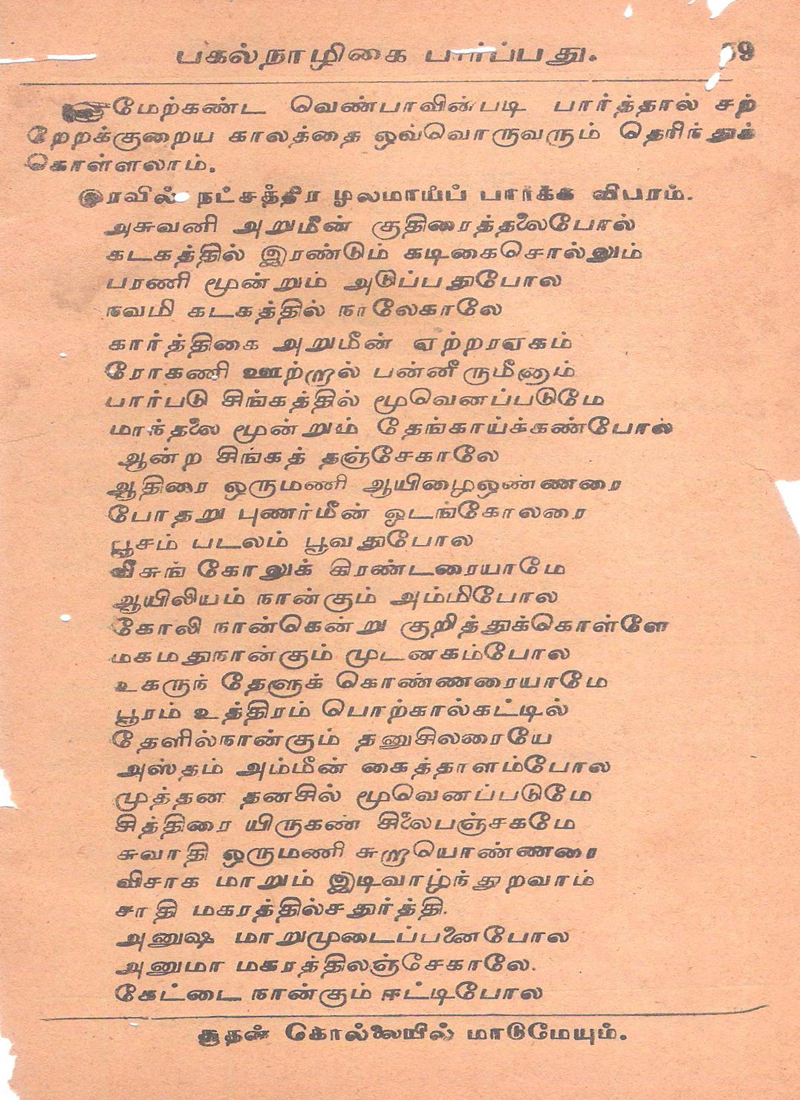 பகல்நாழிகை பார்ப்பது. 59
மேற்கண்ட வெண்பாவின்படி பார்த்தால் சற்
றேறக்குறைய காலத்தை ஒவ்வொருவரும் தெரிந்துக்
கொள்ளலாம்.
இரவில் நட்சத்திர மூலமாய்ப் பார்க்க விபரம்.
அசுவனி அறுமீன் குதிரைத்தலைபோல்
கடகத்தில் இரண்டும் கடிகைசொல்லும்
பரணி மூன்றும் அடுப்பதுபோல
நவமி கடகத்தில் நாலேகாலே
கார்த்திகை அறுமீன் ஏற்றரஏகம்
ரோகணி ஊற்றால் பன்னீருமீனாம்
பார்படு சிங்கத்தில் மூவெனப்படுமே
மாந்தலை மூன்றும் தேங்காய்க்கண்போல்
ஆன்ற சிங்கத் தஞ்சேகாலே
ஆதிரை ஒருமணி ஆயிழைஒண்ணரை
போதறு புணர்மீன் ஓடங்கோலரை
பூசம் படலம் பூவதுபோல
வீசுங் கோலுக் கிரண்டரையாமே
ஆயிலியம் நான்கும் அம்மிபோல
கோலி நான்கென்று குறித்துக்கொள்ளே
மகமதுநான்கும் முடனகம்போல
உகருந் தேளுக் கொண்ணரையாமே
பூரம் உத்திரம் பொற்கால்கட்டில்
தேளில்நான்கும் தனுசிலரையே
அஸ்தம் அம்மீன் கைத்தாளம்போல
முத்தன தனசில் மூவெனப்படுமே
சித்திரை யிருகண் சிலைபஞ்சகமே
சுவாதி ஒருமணி சுறாயொண்ணரை
விசாக மாறும் இடிவாழ்ந்துறவாம்
சாதி மகரத்தில்சதுர்த்தி.
அனுஷ மாறுமுடைப்பனைபோல
அனுமா மகரத்திலஞ்சேகாலே.
கேட்டை நான்கும் ஈட்டிபோல
சூதன் கொல்லையில் மாடுமேயும்.